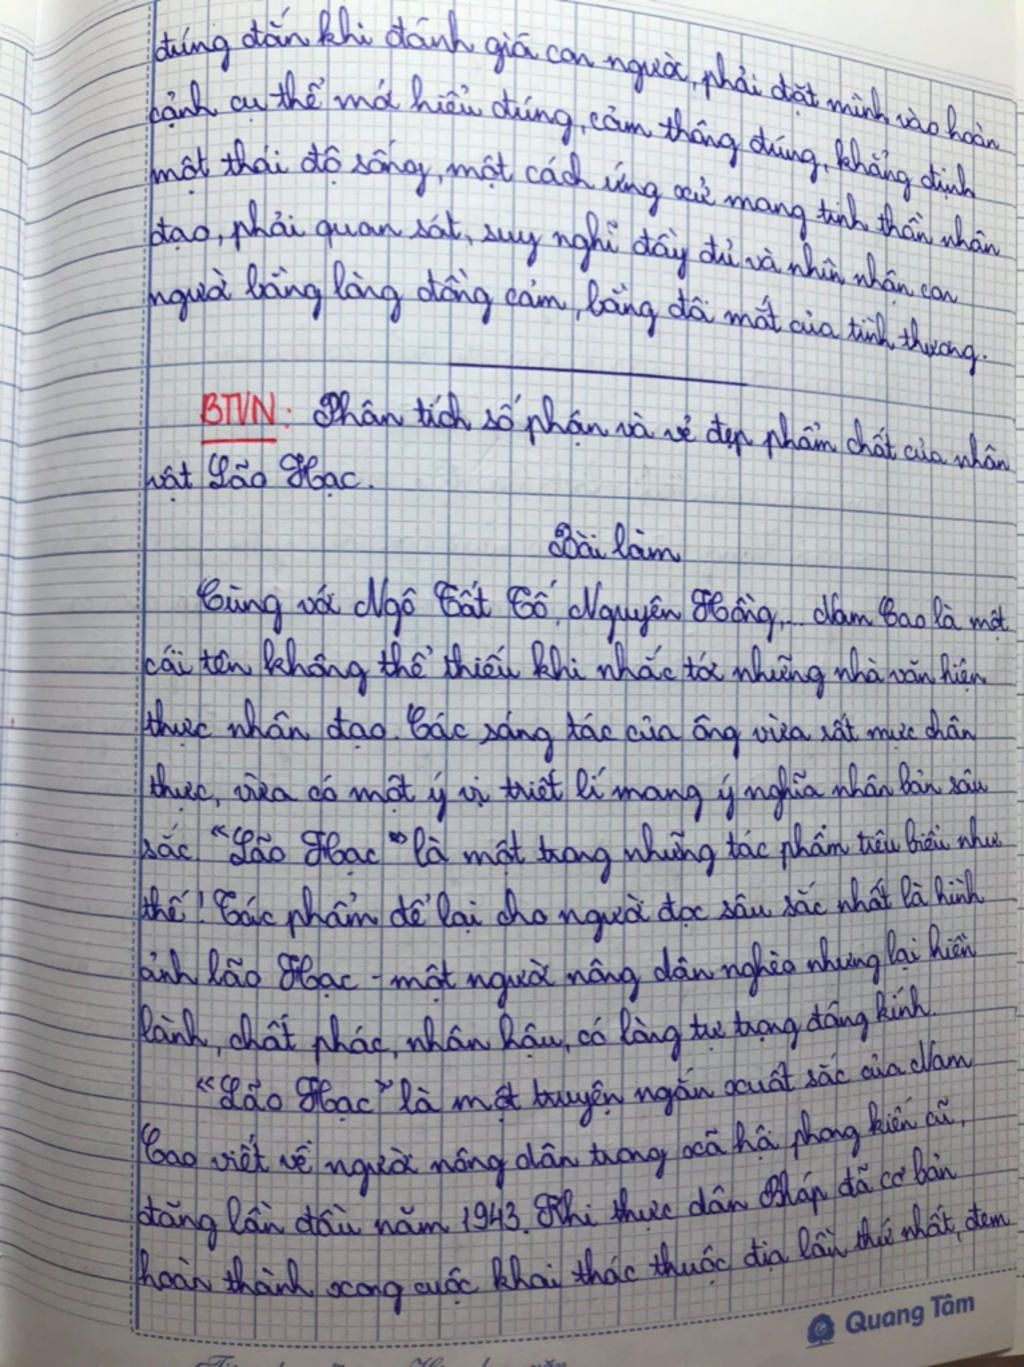 đúng đắn khi đánh giá con người, phải đặt mình vào hoàn
cảnh cụ thể mới hiểu đúng, cảm thông đúng, khẳng định
một thái độ sống, một cách ứng xử mang tinh thần nhân
đạo, phải quan sát, suy nghĩ đầy đủ và nhìn nhận con
người bằng lòng đồng cảm, bằng đôi mắt của tình thương.
BTVN: Phân tích số phận và vẻ đẹp phẩm chất của nhân
vật Lão Hạc.
Bài làm
Cùng với Ngô Tất Tố, Nguyên Hồng,... Nam Cao là một
cái tên không thể thiếu khi nhắc tới những nhà văn hiện
thực nhân đạo. Các sáng tác của ông vừa rất mực chân
thực, vừa có một ý vị triết lí mang ý nghĩa nhân bản sâu
sắc "Lão Hạc" là một trong những tác phẩm tiêu biểu như
thế! Tác phẩm để lại cho người đọc sâu sắc nhất là hình
ảnh lão Hạc - một người nông dân nghèo nhưng lại hiền
lành, chất phác, nhân hậu, có lòng tự trọng đáng kính.
"Lão Hạc" là một truyện ngắn xuất sắc của Nam
Cao viết về người nông dân trong xã hội phong kiến cũ,
đăng lần đầu năm 1943. Khi thực dân Pháp đã cơ bản
hoàn thành xong cuộc khai thác thuộc địa lần thứ nhất, đem
Quang Tâm